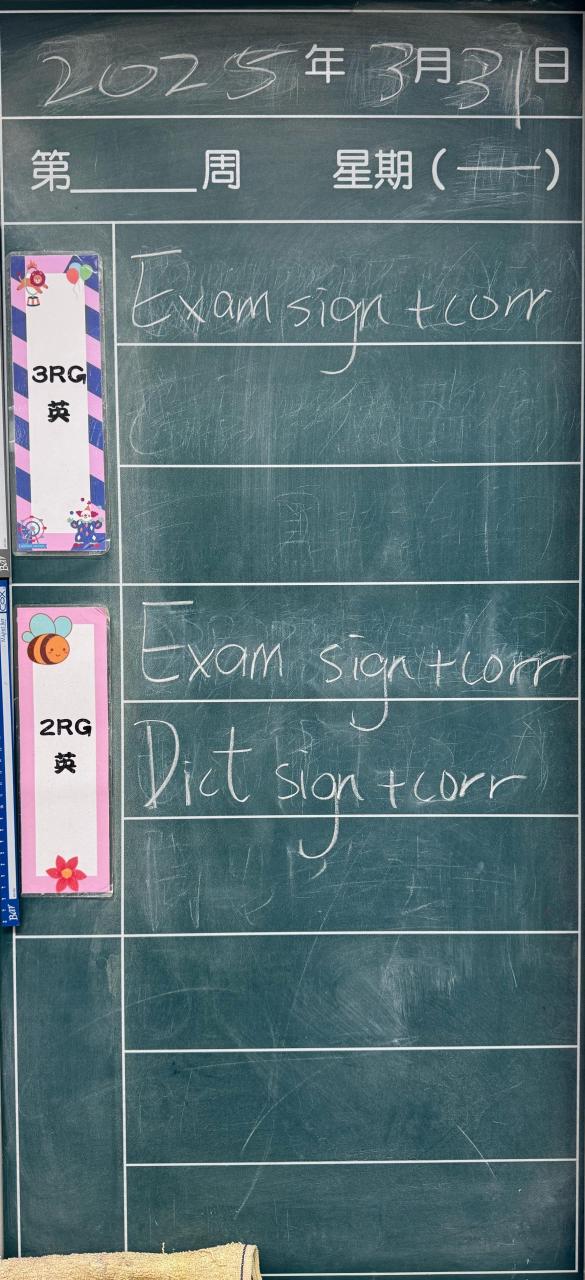 2025年3月31日
第______周 星期(一)
3RG
英
Exam sign + corr
2RG
英
Exam sign + corr
Dict sign + corr